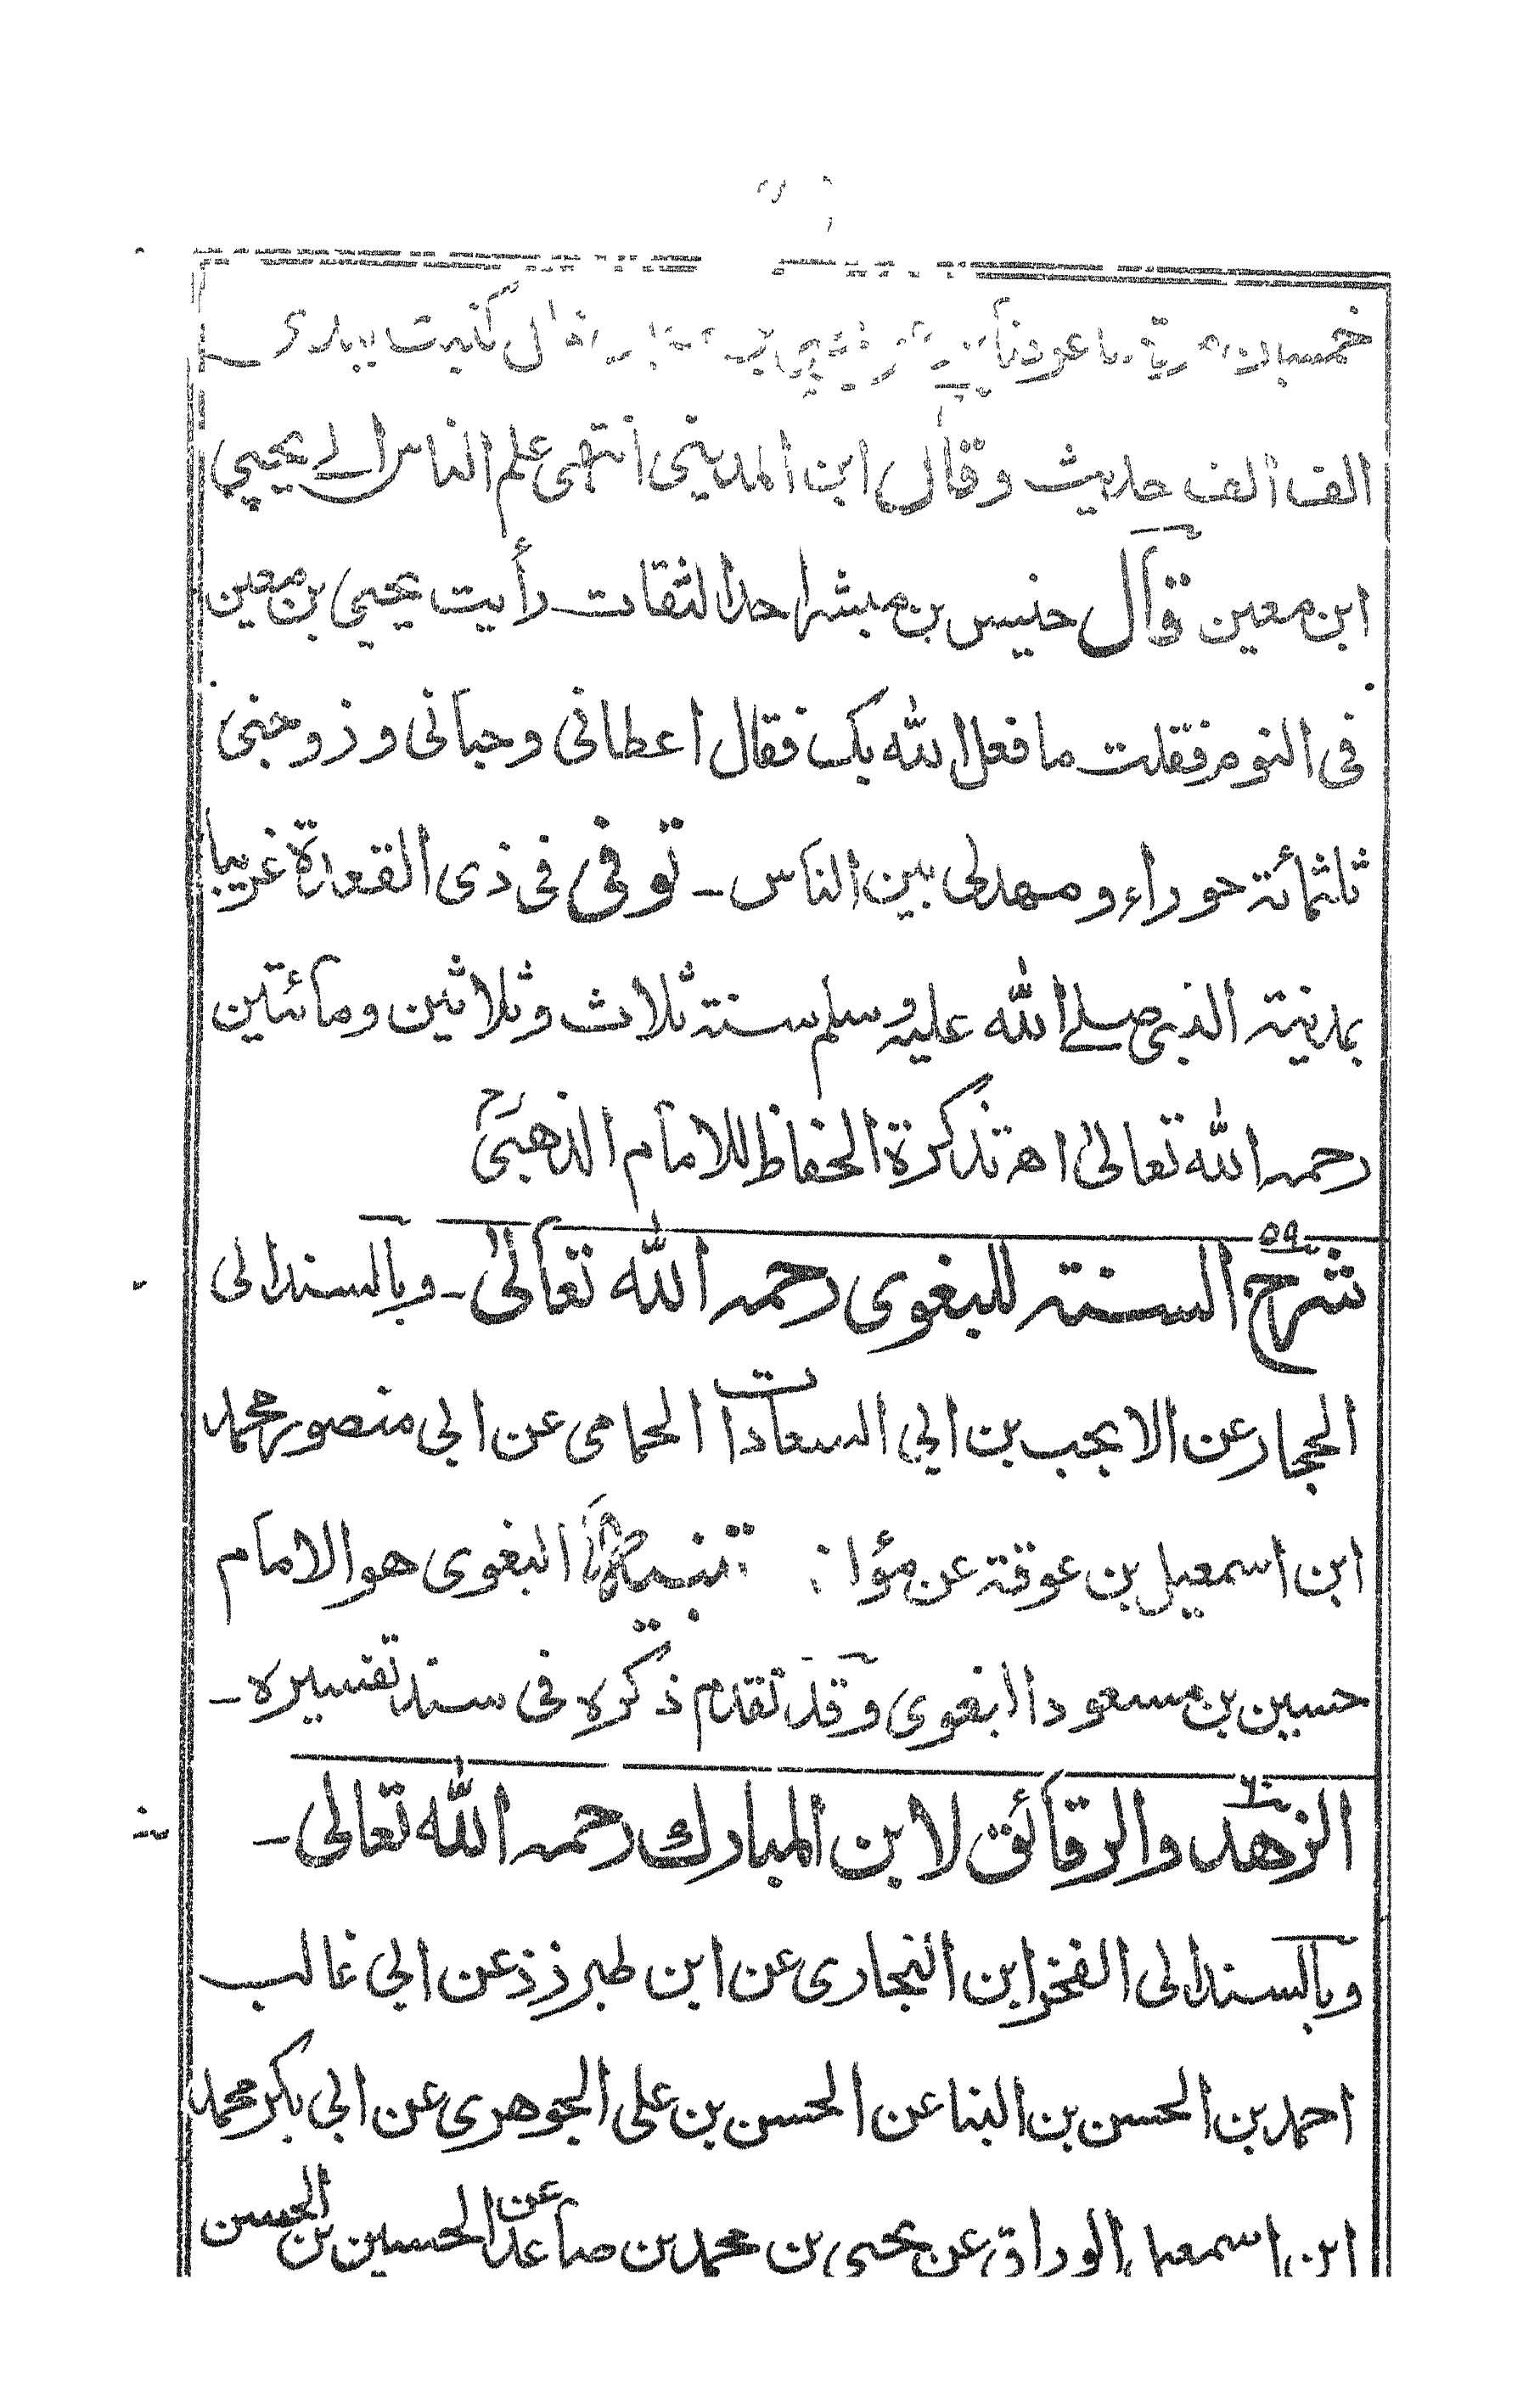 قال كتبت بيدى
الف الف حديث وقال ابن المدينى انتهى علم الناس الے يحيى
ابن معين قال حنيس بن مبشر احد الثقات رأيت يحيى بن معين
فى النوم فقلت ما فعل الله بك فقال اعطانى وحبانى وزوجنى
ثلثمائة حوراء ومهد لى بين الناس ـ توفى فى ذى القعدة غريبا
بمدينة النبى صلے الله عليه وسلم سنة ثلاث وثلاثين ومائتين
رحمه الله تعالىٰ اھ تذكرة الحفاظ للامام الذهبىؒ
٥٩ شرح السنة للبغوى رحمه الله تعالىٰ ـ وبالسند الى
الحجار عن الانجب بن ابى السعادات الحمامى عن ابى منصور محمد
ابن اسمعيل بن عوقة عن مؤا : تنبيه البغوى هو الامام
حسين بن مسعود البغوى وقد تقدم ذكره فى سند تفسيره ـ
٦٠ الزهد والرقائق لابن المبارك رحمه الله تعالى ـ
وبالسند الى الفخر ابن النجارى عن ابن طبرزذ عن ابى غالب
احمد بن الحسن بن البنا عن الحسن بن على الجوهرى عن ابى بكر محمد
ابن اسمعيل الوراق عن يحيى بن محمد بن صاعد عن الحسين بن الحسن